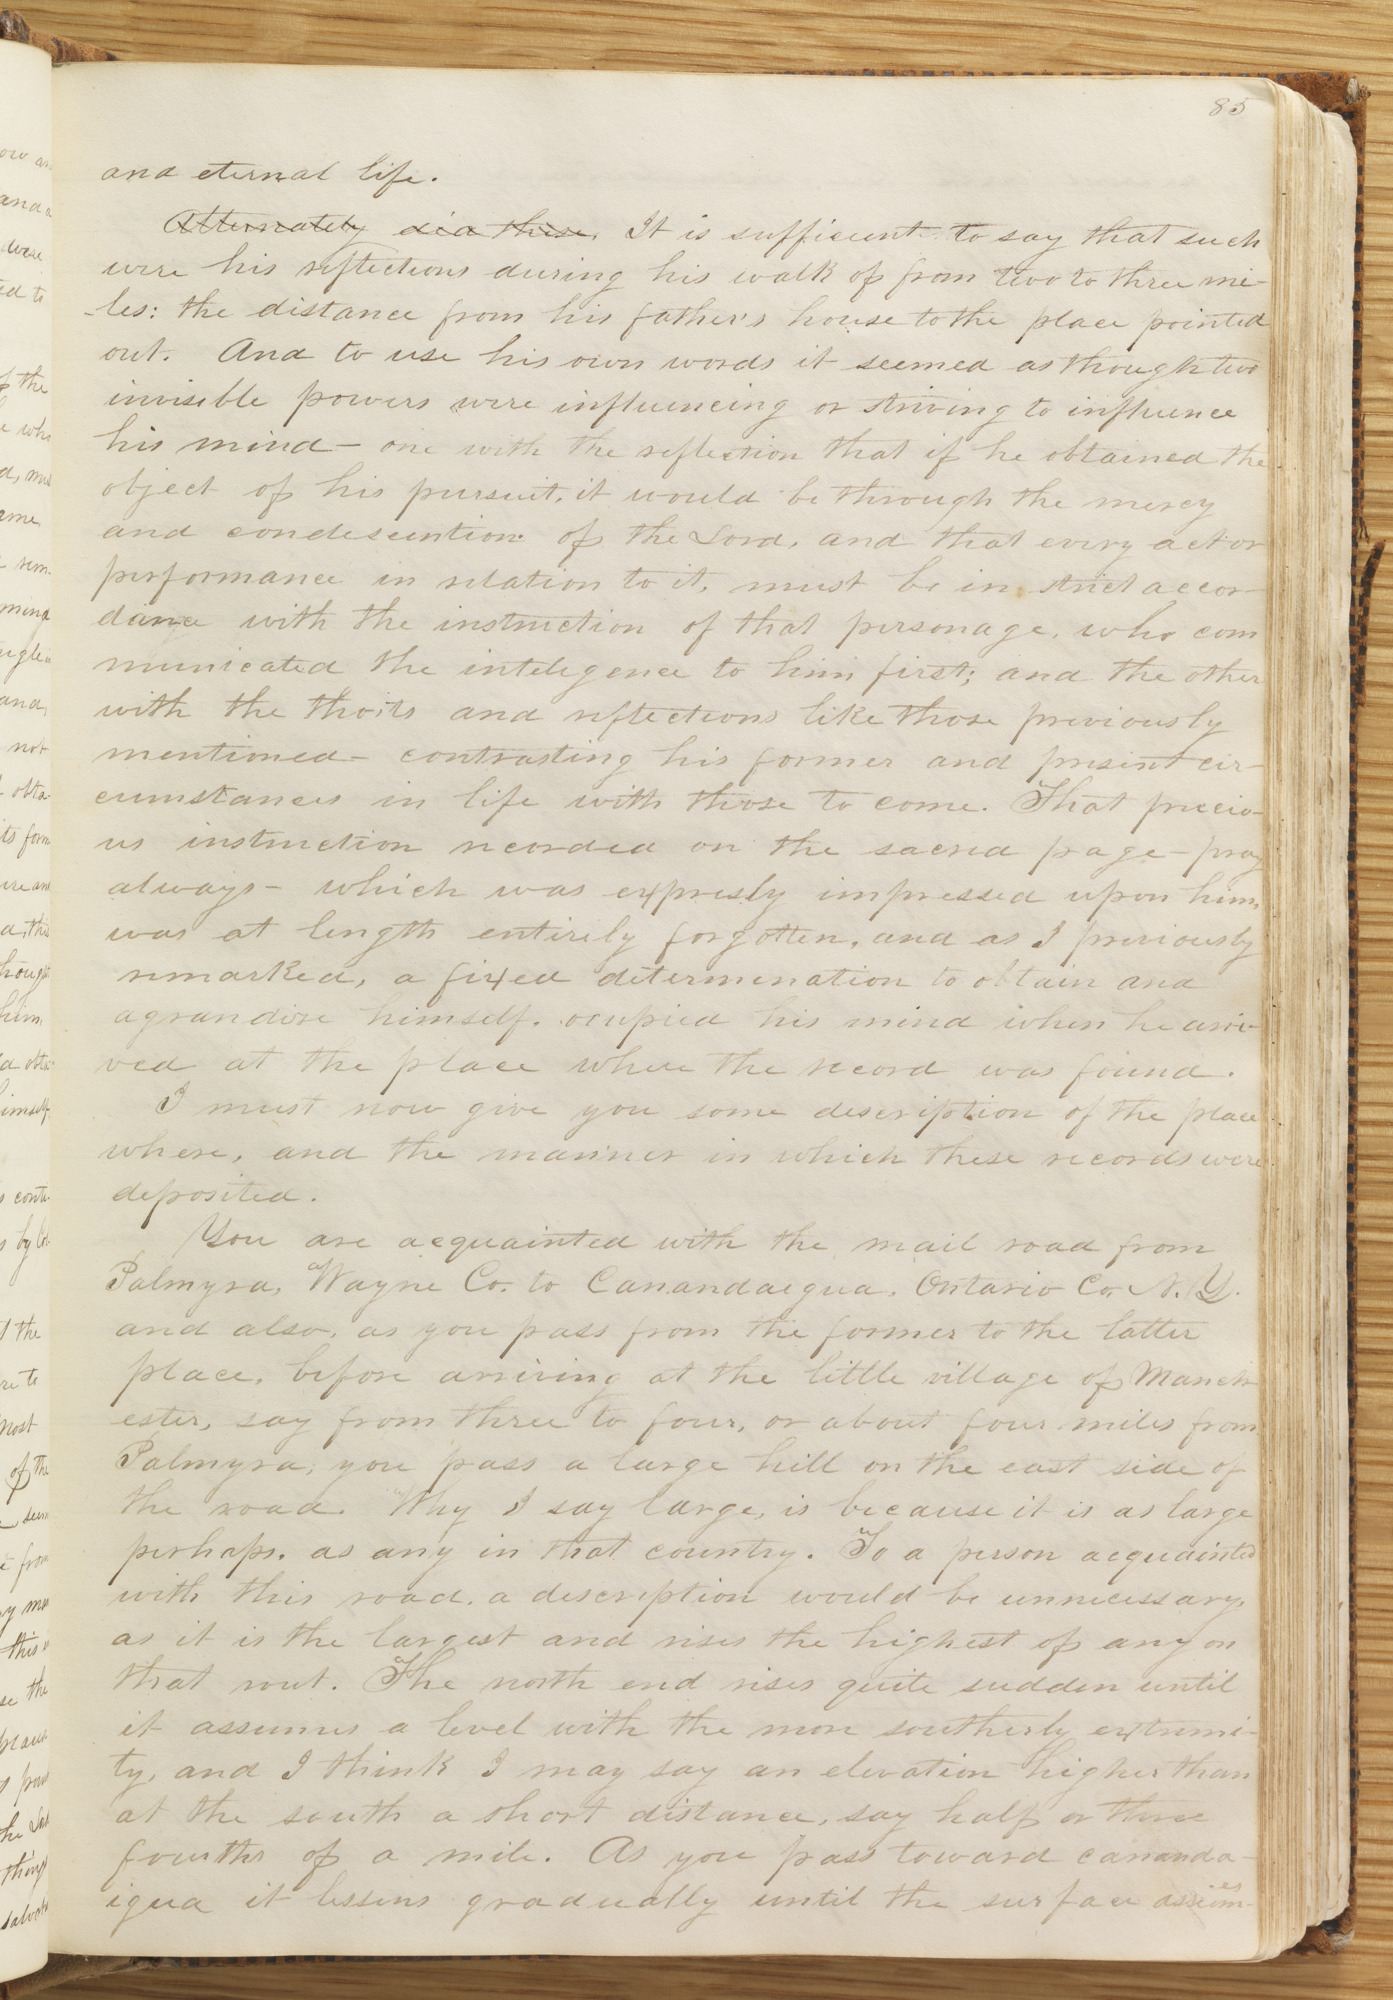 85
and eternal life.
Alternately did these, It is sufficient to say that such
were his reflections during his walk of from two to three mi-
-les: the distance from his father's house to the place pointed
out. And to use his own words it seemed as though two
invisible powers were influencing or striving to influence
his mind— one with the reflection that if he obtained the
object of his pursuit, it would be through the mercy
and condescention of the Lord, and that every act or
performance in relation to it, must be in strict accor-
dance with the instruction of that personage, who com
municated the inteligence to him first; and the other
with the thoits and reflections like those previously
mentioned— contrasting his former and present cir-
cumstances in life with those to come. That precio-
us instruction recorded on the sacred page— pray
always— which was expresly impressed upon him,
was at length entirely forgotten, and as I previously
remarked, a fixed determination to obtain and
agrandise himself, ocupied his mind when he arri-
ved at the place where the record was found.
I must now give you some description of the place
where, and the manner in which these records were
deposited.
You are acquainted with the mail road from
Palmyra, Wayne Co. to Canandaigua, Ontario Co. N. Y.
and also, as you pass from the former to the latter
place, before arriving at the little village of Manch-
ester, say from three to four, or about four miles from
Palmyra, you pass a large hill on the east side of
the road. Why I say large, is because it is as large
perhaps, as any in that country. To a person acquainted
with this road, a description would be unnecessary,
as it is the largest and rises the highest of any on
that rout. The north end rises quite sudden until
it assumes a level with the more southerly extremi-
ty, and I think I may say an elevation higher than
at the south a short distance, say half or three
fourths of a mile. As you pass toward cananda-
igua it lessens gradually until the surface assum-
es